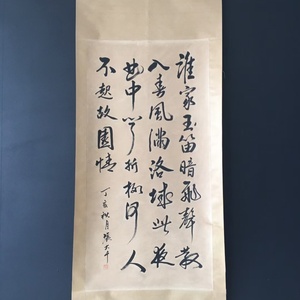 誰家玉笛暗飛聲散
入春風滿洛城此夜
曲中聞折柳何人
不起故園情
丁亥秋月張大千